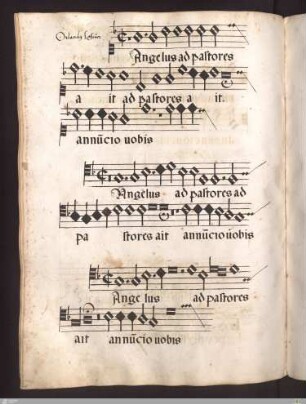 Orlando Lassus
Angelus ad pastores
a it ad pastores a it.
annu͂cio uobis
Angelus ad pastores ad
pa stores ait annu͂cio uobis
Ange lus ad pastores
ait annu͂cio uobis